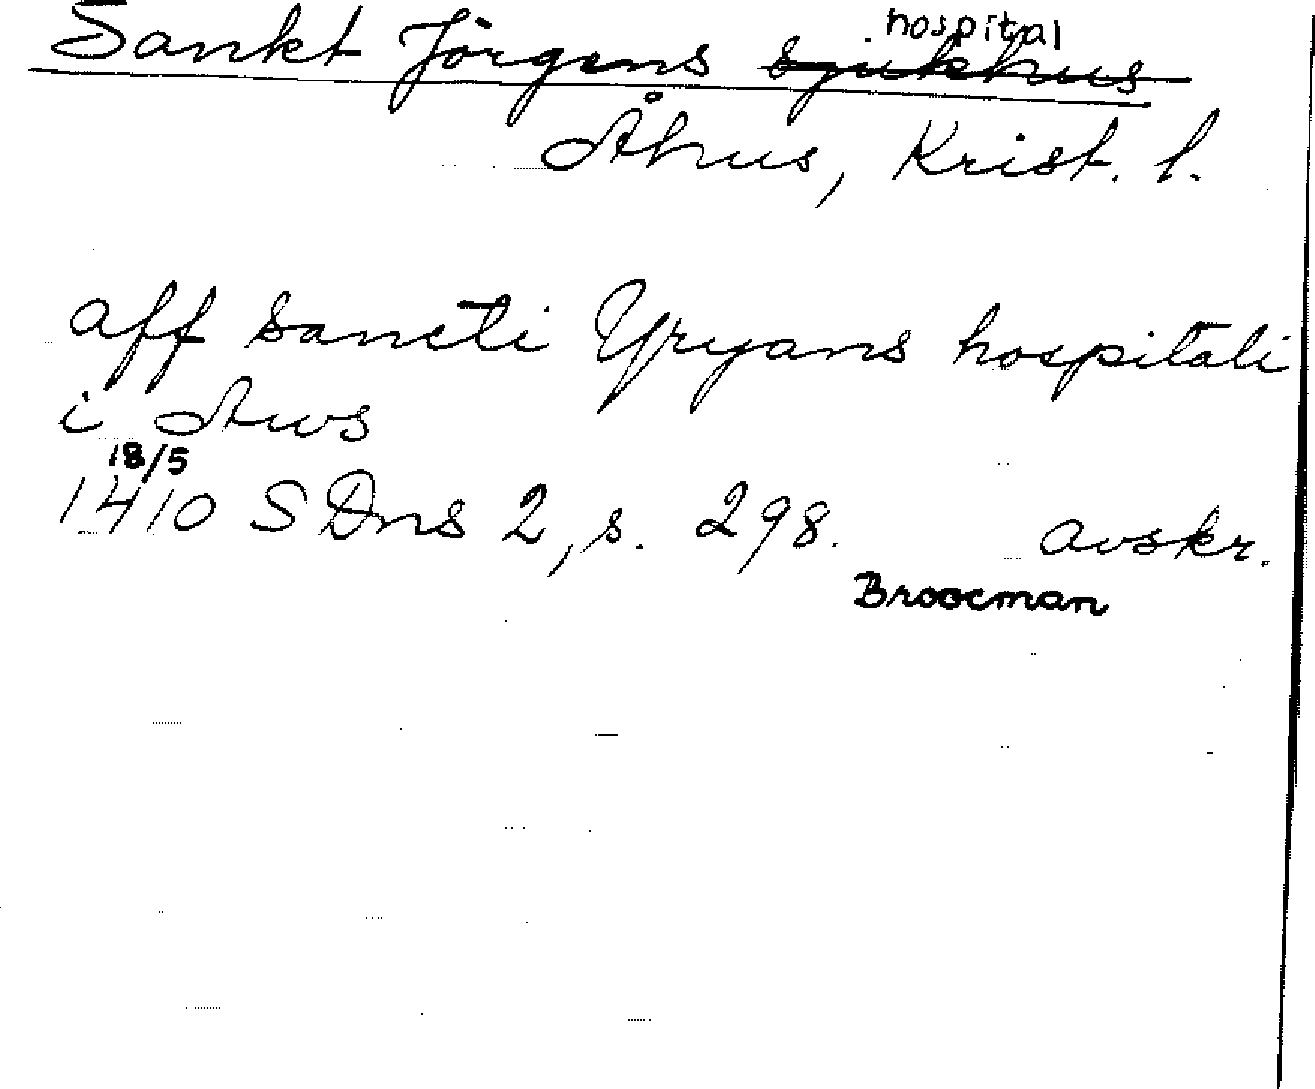 Sankt Jörgens sjukhus hospital
Åhus, Krist. l.
aff sancti Yryans hospitali
i Aws
18/5
1410 SDns 2, s. 298. avskr.
Broocman